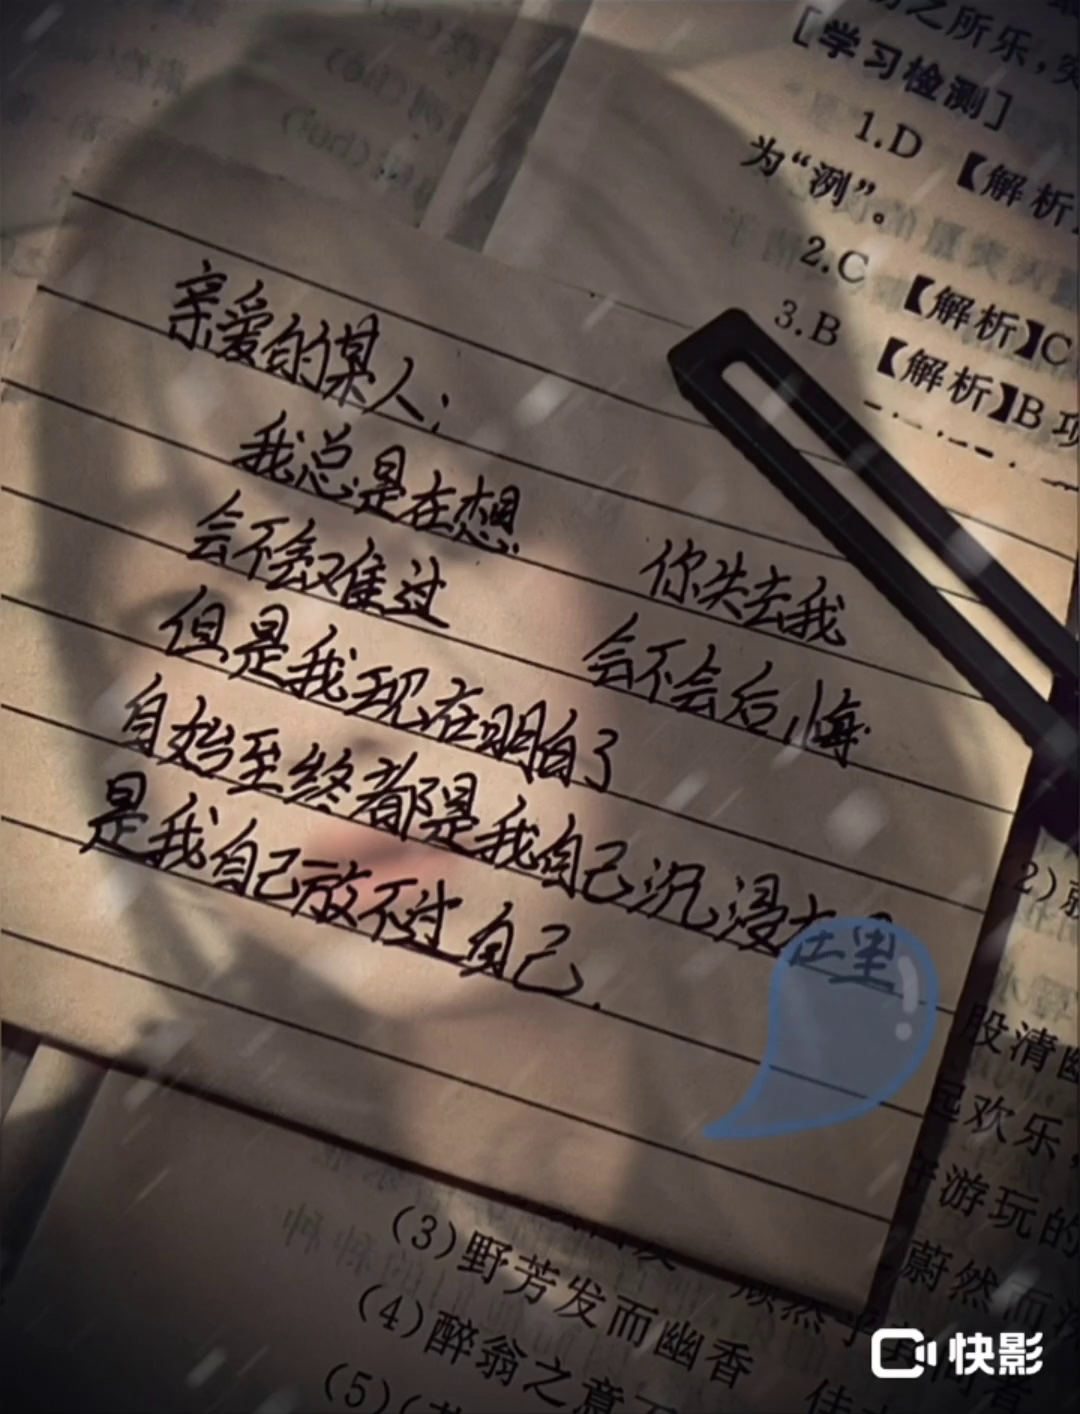 之所乐,突
[学习检测]
1.D 【解析】
为“洌”。
2.C 【解析】C
3.B 【解析】B项
亲爱的某人:
我总是在想 你失去我
会不会难过 会不会后悔
但是我现在明白了
自始至终都是我自己沉浸在里
是我自己放不过自己.
2)
股清幽
起欢乐,
游玩的
蔚然而深
(3)野芳发而幽香
(4)醉翁之意不
(5)
快影